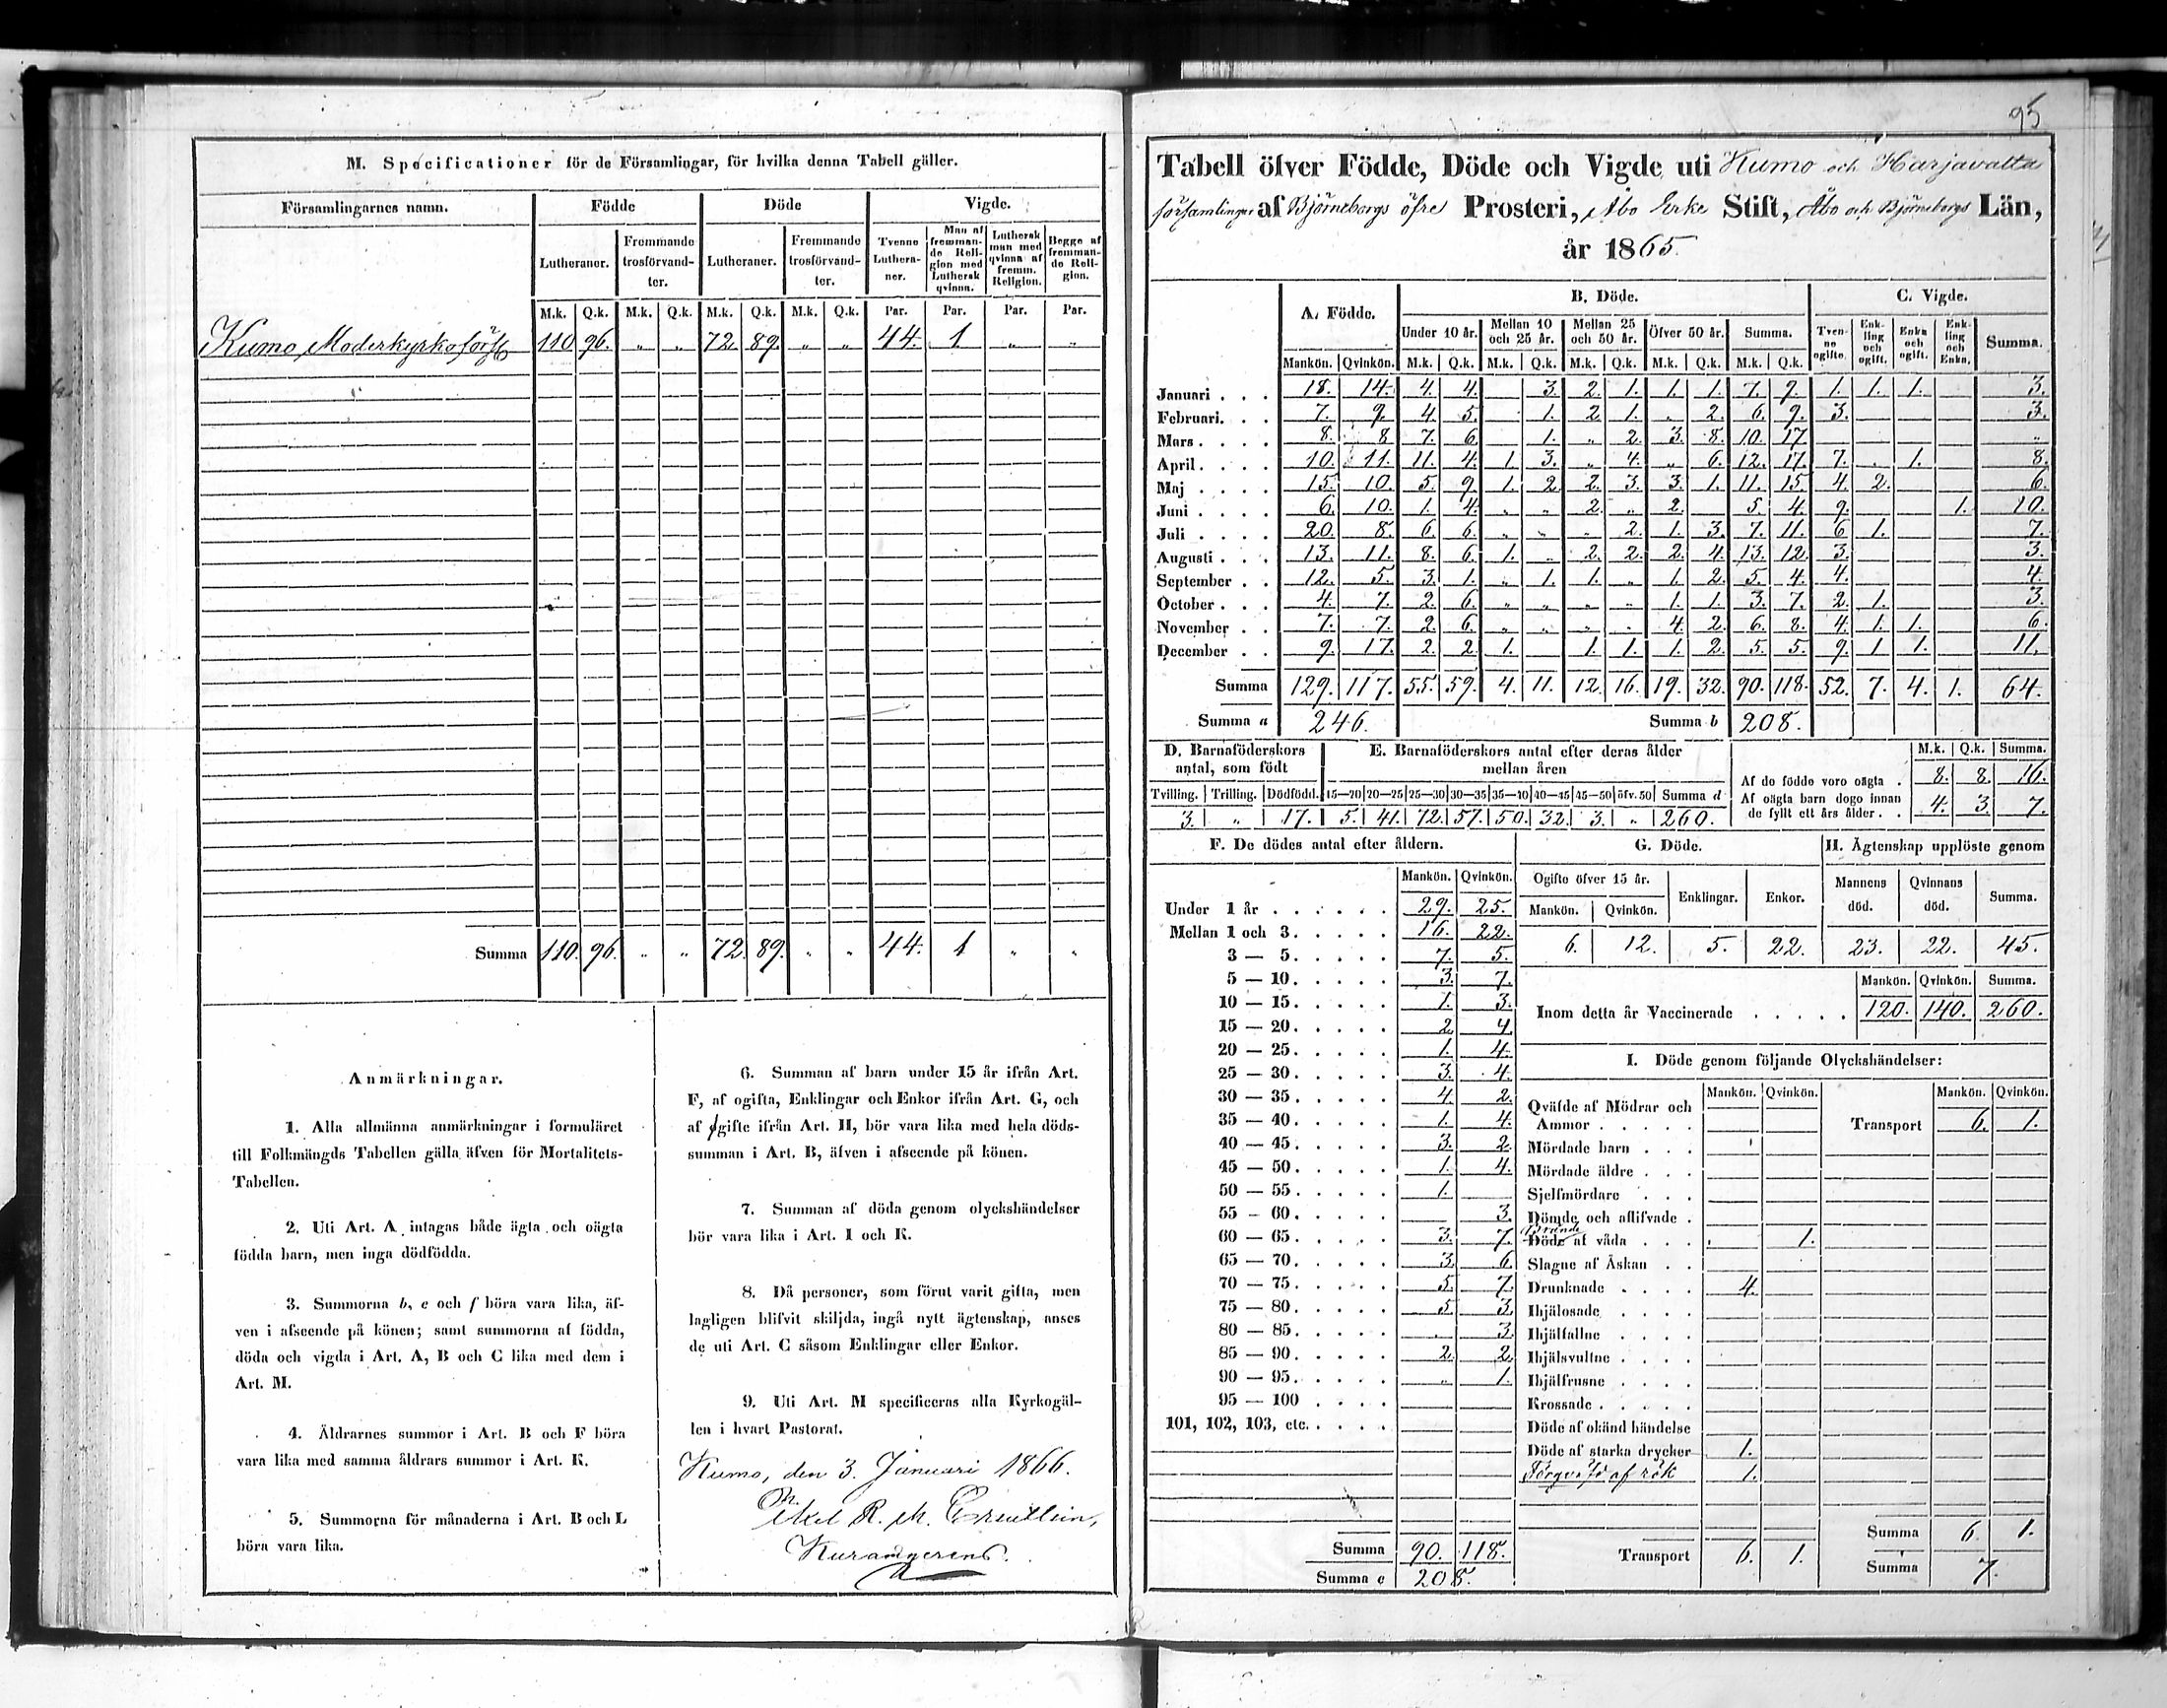 M. Specificationer för de Församlingar, för hvilka denna Tabell gäller.
Församlingarnes namn. Födde Döde Vigde.
Lutheraner. Fremmande trosförvandter. Lutheraner. Fremmande trosförvandter. Tvenne Lutheraner. Man af fremmande Religion med Luthersk qvinna. Luthersk man med qvinna af fremm. Religion. Begge af fremmande Religion.
M.k. Q.k. M.k. Q.k. M.k. Q.k. M.k. Q.k. Par. Par. Par. Par.
Kumo Moderkyrkoförs 110 96. „ „ 72. 89. „ „ 44. 1 „ „
Summa 110. 96. „ „ 72. 89. „ „ 44. 1 „ „
Anmärkningar.
1. Alla allmänna anmärkningar i formuläret
till Folkmängds Tabellen gälla äfven för Mortalitets-
Tabellen.
2. Uti Art. A intagas både ägta och oägta
födda barn, men inga dödfödda.
3. Summorna b, e och f böra vara lika, äf-
ven i afseende på könen; samt summorna af födda,
döda och vigda i Art. A, B och C lika med dem i
Art. M.
4. Äldrarnes summor i Art. B och F böra
vara lika med samma åldrars summor i Art. K.
5. Summorna för månaderna i Art. B och L
böra vara lika.
6. Summan af barn under 15 år ifrån Art.
F, af ogifta, Enklingar och Enkor ifrån Art. G, och
af gifte ifrån Art. H, bör vara lika med hela döds-
summan i Art. B, äfven i afseende på könen.
7. Summan af döda genom olyckshändelser
bör vara lika i Art. I och K.
8. Då personer, som förut varit gifta, men
lagligen blifvit skiljda, ingå nytt ägtenskap, anses
de uti Art. C såsom Enklingar eller Enkor.
9. Uti Art. M specificeras alla Kyrkogäl-
len i hvart Pastorat.
Kumo, den 3. Januari 1866.
Axel R. M.
95
Tabell öfver Födde, Döde och Vigde uti Kumo och Harjavalta
församlingar af Björneborgs öfre Prosteri, Åbo Erke Stift, Åbo och Björneborgs Län,
år 1865.
A. Födde. B. Döde. C. Vigde.
Under 10 år. Mellan 10 och 25 år. Mellan 25 och 50 år. Öfver 50 år. Summa. Tvenne ogifte. Enkling och ogift. Enka och ogift. Enkling och Enka. Summa.
Mankön. Qvinkön. M.k. Q.k. M.k. Q.k. M.k. Q.k. M.k. Q.k. M.k. Q.k.
Januari . . . 18. 14. 4. 4. 3. 2. 1. 1. 1. 7. 9. 1. 1. 1. 3.
Februari. . . 7. 9. 4. 5. 1. 2. 1. . 2. 6. 9. 3. 3.
Mars . . . . 8. 8 7. 6. 1. „ 2. 3. 8. 10. 17 „
April . . . . 10. 11. 11. 4. 1. 3. „ 4. „ 6. 12. 17. 7. . 1. 8.
Maj . . . . 15. 10. 5. 9. 1. 2. 2. 3. 3. 1. 11. 15 4. 2. 6.
Juni . . . . 6. 10. 1. 4. „ „ 2. „ 2. 5. 4. 9. 1. 10.
Juli . . . . 20. 8. 6. 6. „ „ „ 2. 1. 3. 7. 11. 6 1. 7.
Augusti . . . 13. 11. 8. 6. 1. „ 2. 2. 2. 4. 13. 12. 3. 3.
September . . 12. 5. 3. 1. „ 1. 1. „ 1. 2. 5. 4. 4. 4.
October . . . 4. 7. 2. 6. „ „ „ „ 1. 1. 3. 7. 2. 1. 3.
November . . 7. 7. 2. 6. „ „ „ „ 4. 2. 6. 8. 4. 1. 1. 6.
December . . 9. 17. 2. 2. 1. 1. 1. 1. 2. 5. 5. 9. 1 1. 11.
Summa 129. 117. 55. 59. 4. 11. 12. 16. 19. 32. 90. 118. 52. 7. 4. 1. 64.
Summa a 246. Summa b 208.
D. Barnaföderskors antal, som födt
Tvilling. Trilling. Dödfödd.
3. „ 17.
E. Barnaföderskors antal efter deras ålder mellan åren
15—20 20—25 25—30 30—35 35—40 40—45 45—50 öfv. 50 Summa d
5. 41. 72. 57. 50. 32. 3. „ 260.
M.k. Q.k. Summa.
Af de födde voro oägta . 8. 8. 16.
Af oägta barn dogo innan
de fyllt ett års ålder . . 4. 3. 7.
F. De dödes antal efter åldern.
Mankön. Qvinkön.
Under 1 år . . . . . . 29. 25.
Mellan 1 och 3. . . . . 16. 22.
3 — 5. . . . . 7. 5.
5 — 10. . . . . 3. 7.
10 — 15. . . . . 1. 3.
15 — 20. . . . . 2. 4.
20 — 25. . . . . 1. 4.
25 — 30. . . . . 3. 4.
30 — 35. . . . . 4. 2.
35 — 40. . . . . 1. 4.
40 — 45. . . . . 3. 2.
45 — 50. . . . . 1. 4.
50 — 55. . . . . 1.
55 — 60. . . . . 3.
60 — 65. . . . . 3. 7.
65 — 70. . . . . 3. 6.
70 — 75. . . . . 5. 7.
75 — 80. . . . . 5. 3.
80 — 85. . . . . . 3.
85 — 90. . . . . 2. 2.
90 — 95. . . . . „ 1.
95 — 100 . . . .
101, 102, 103, etc. . . . .
Summa 90. 118.
Summa e 208.
G. Döde.
Ogifte öfver 15 år. Enklingar. Enkor.
Mankön. Qvinkön.
6. 12. 5. 22.
H. Ägtenskap upplöste genom
Mannens död. Qvinnans död. Summa.
23. 22. 45.
Mankön. Qvinkön. Summa.
Inom detta år Vaccinerade . . . . . 120. 140. 260.
I. Döde genom följande Olyckshändelser:
Mankön. Qvinkön. Mankön. Qvinkön.
Qväfde af Mödrar och
Ammor . . . . . Transport 6. 1.
Mördade barn . . .
Mördade äldre . . .
Sjelfmördare . . .
Dömde och aflifvade .
Döde af våda . . . 1.
Slagne af Åskan . .
Drunknade . . . . 4.
Ihjälosade . . . .
Ihjälfallne . . . .
Ihjälsvultne . . . .
Ihjälfrusne . . . .
Krossade . . . . .
Döde af okänd händelse
Döde af starka drycker 1.
Förqväfd af rök 1.
Summa 6. 1.
Transport 6. 1. Summa 7.